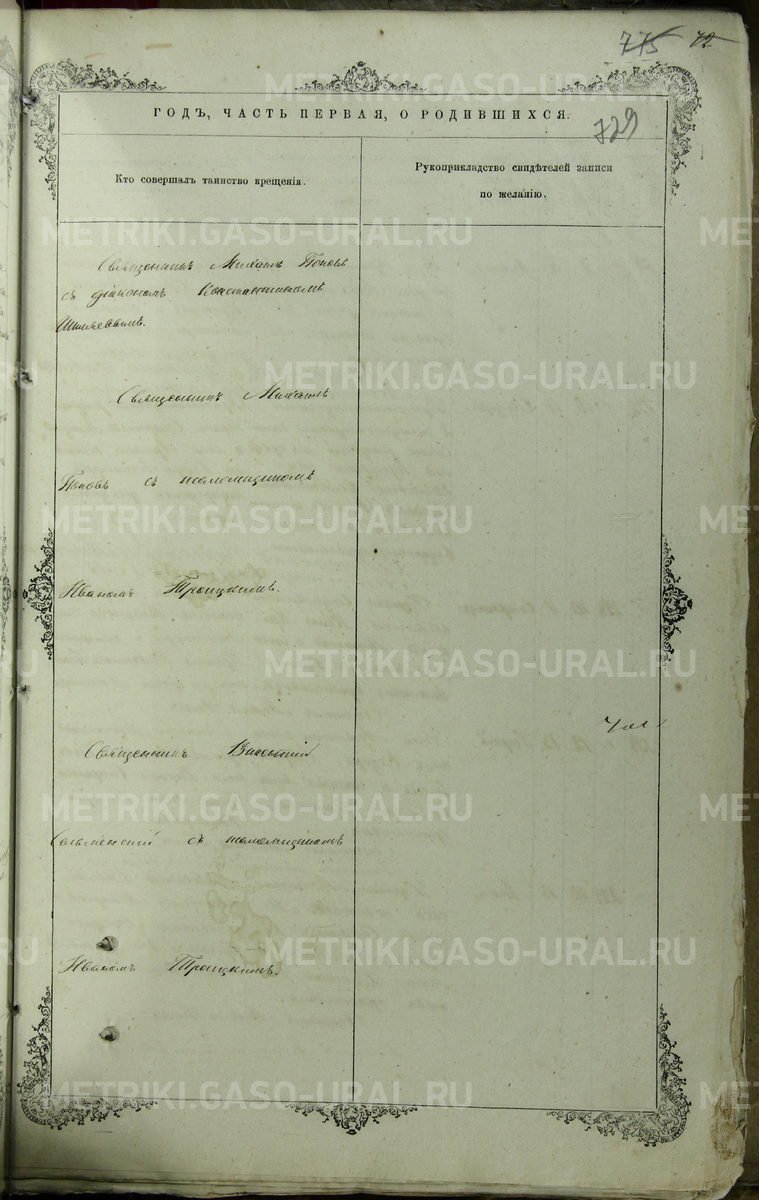 775 72
ГОДЪ, ЧАСТЬ ПЕРВАЯ, О РОДИВШИХСЯ.
729
Кто совершалъ таинство крещенія.
Рукоприкладство свидѣтелей записи
по желанію.
Священникъ Михаилъ Поповъ
съ діакономъ Константиномъ
Священникъ Михаилъ
Поповъ съ псаломщикомъ
Иваномъ Троицкимъ.
Священникъ Викентій
съ псаломщикомъ
Иваномъ Троицкимъ.
METRIKI.GASO-URAL.RU